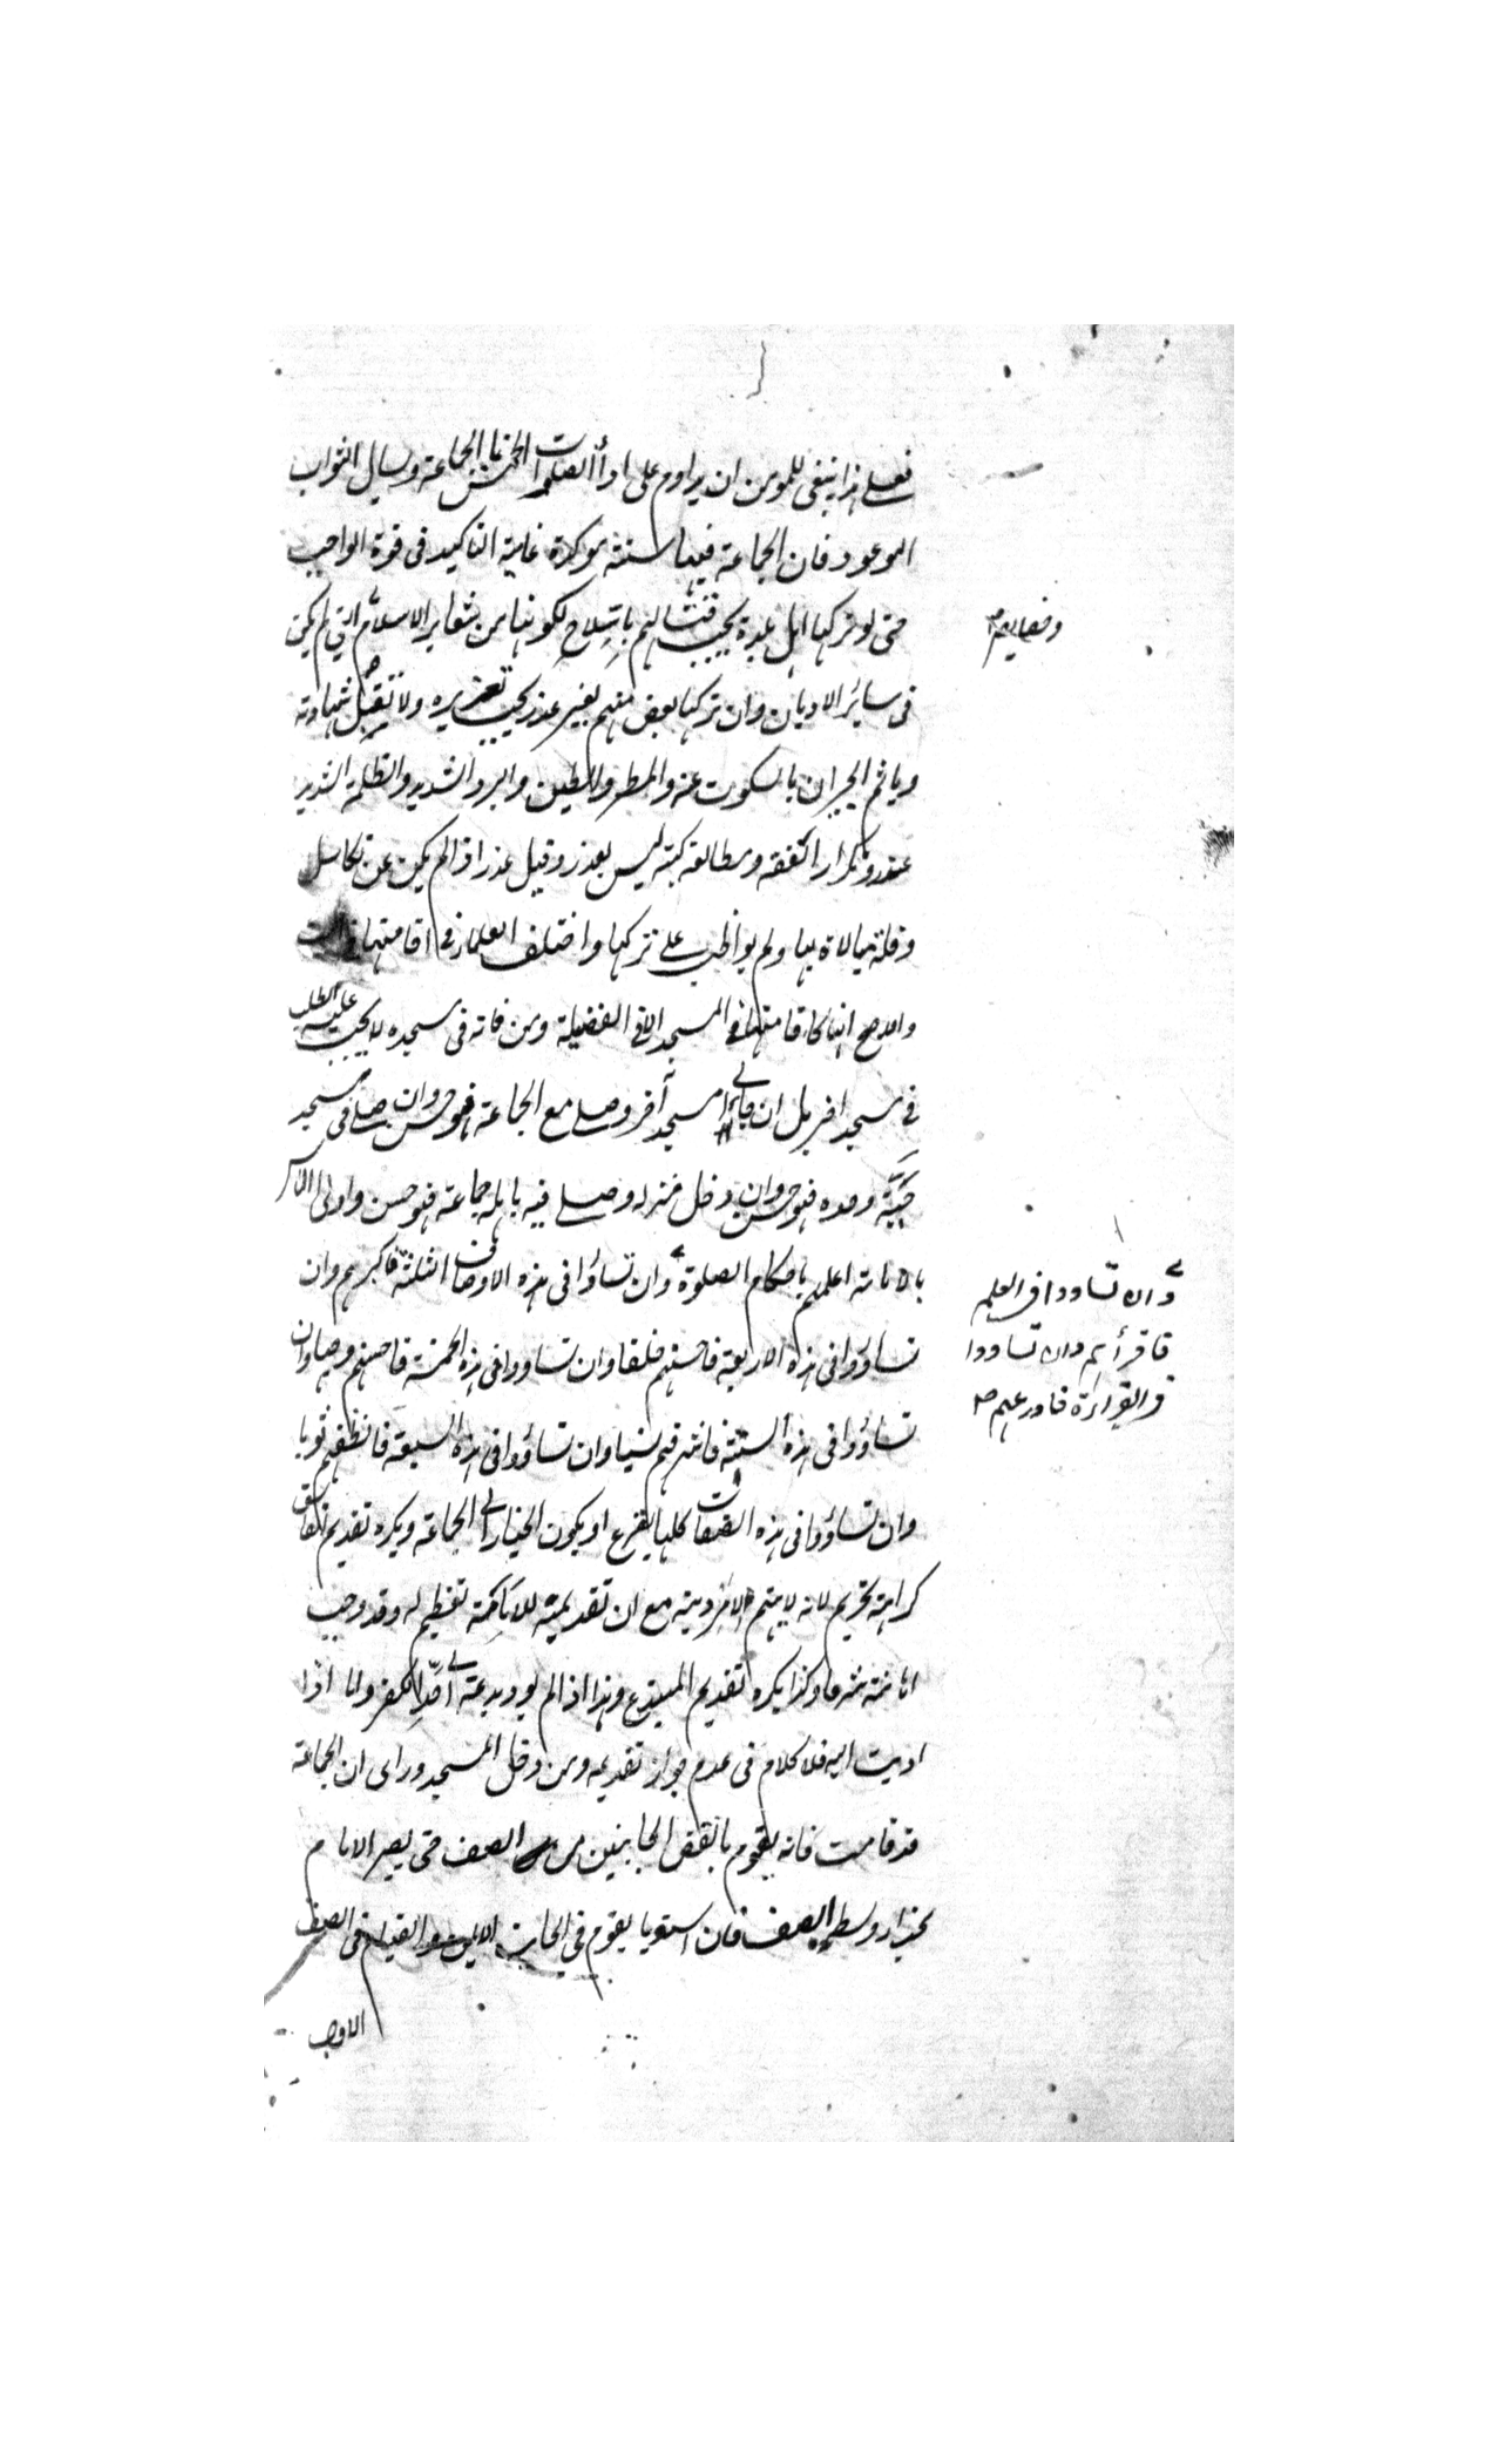 فعلى هذا ينبغى للمومن ان يداوم على اداء الصلوات الخمس بالجماعة وينال الثواب
الموعود فان الجماعة فيها سنة موكدة غاية التاكيد فى قوة الواجب
حتى لو تركها اهل بلدة يجب قتالهم بالسلاح لكونها من شعاير الاسلام التي لم يكن
فى سائر الاديان وان تركها بعض منهم بغير عذر يجب تعزيره ولا تقبل شهادته
وياثم الجيران بالسكوت عنه والمطر والطين والبرد الشديد والظلمة الشديد
عذر وتكرار الفقه ومطالعة كتبه ليس بعذر وقيل عذر اذا لم يكن عن تكاسل
وقلة مبالاة بها ولم يواظب على تركها واختلف العلماء فى اقامتها فى البيت
والاصح انها كاقامتها فى المسجد الا فى الفضيلة ومن فاته فى مسجده لا يجب عليه الطلب
فى مسجد اخر بل ان اتى مسجدا آخر وصلى مع الجماعة فهو حسن وان صلى فى مسجد
حيّه وحده فهو حسن وان دخل منزله وصلى فيه باهله جماعة فهو حسن واولى الناس
بالامامة اعلمهم باحكام الصلوة وان تساؤوا فى هذه الاوصاف الثلثة فاكبرهم وان
تساؤوا فى هذه الاربعة فاحسنهم خلقا وان تساووا فى هذه الخمسة فاصبحهم وجها وان
تساؤوا فى هذه الستة فاشرفهم نسبا وان تساؤوا فى هذه السبعة فانظفهم ثوبا
وان تساؤوا فى هذه الصفات كلها يقرع او يكون الخيار الى الجماعة ويكره تقديم الفاسق
كراهة تحريم لانه لا يهتم لامر دينه مع ان تقديمه للامامة تعظيم له وقد وجب
اهانته شرعا وكذا يكره تقديم المبتدع وهذا اذا لم يود بدعته الى الكفر واما اذا
اديت اليه فلا كلام فى عدم جواز تقديمه ومن دخل المسجد وراى ان الجماعة
قد قامت فانه يقوم بانقص الجانبين من الصف حتى يصير الامام
بحذاء وسط الصف فان استويا يقوم فى الجانب الايمن والقيام فى الصف
الاول
وان تساووا فى العلم
فاقرأهم وان تساووا
فى القراءة فاورعهم صح